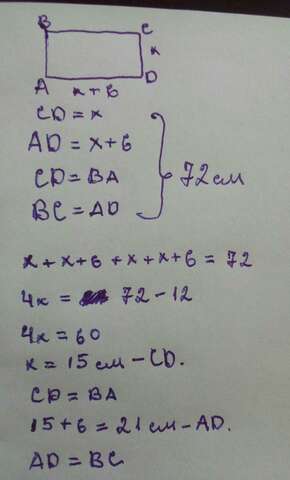 B C
x
A D
x + 6
CD = x
AD = x+6
CD = BA
BC = AD
72 см
x + x + 6 + x + x + 6 = 72
4x = 72 - 12
4x = 60
x = 15 см - CD.
CD = BA
15 + 6 = 21 см - AD.
AD = BC